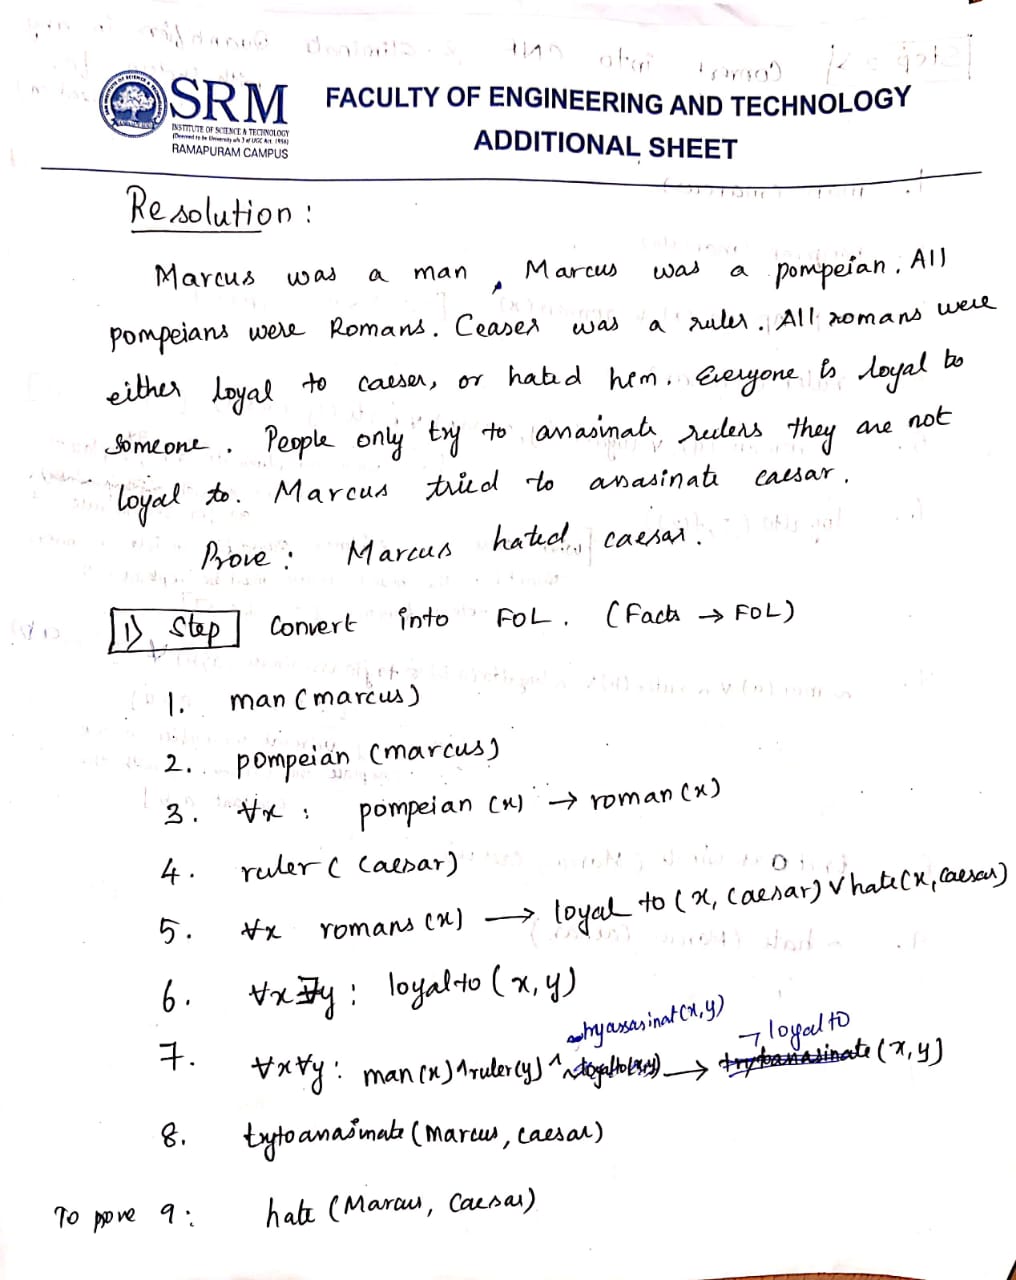 SRM
INSTITUTE OF SCIENCE & TECHNOLOGY
(Deemed to be University u/s 3 of UGC Act, 1956)
RAMAPURAM CAMPUS
FACULTY OF ENGINEERING AND TECHNOLOGY
ADDITIONAL SHEET
Resolution :
Marcus was a man , Marcus was a pompeian. All
pompeians were Romans. Ceaser was a ruler. All romans were
either loyal to caeser, or hated him. Everyone is loyal to
someone. People only try to anasinate rulers they are not
loyal to. Marcus tried to anasinate caesar.
Prove : Marcus hated caesar.
1) Step Convert into FOL. (Facts → FOL)
1. man (marcus)
2. pompeian (marcus)
3. ∀x : pompeian (x) → roman (x)
4. ruler ( Caesar)
5. ∀x romans (x) → loyal to (x, Caesar) ∨ hate (x, Caesar)
6. ∀x∃y : loyalto (x, y)
7. ∀x∀y : man (x) ^ ruler (y) ^ tryassasinat (x, y) → ¬ loyal to (x, y)
8. trytoanasinate (Marcus, Caesar)
To prove 9 : hate (Marcus, Caesar)